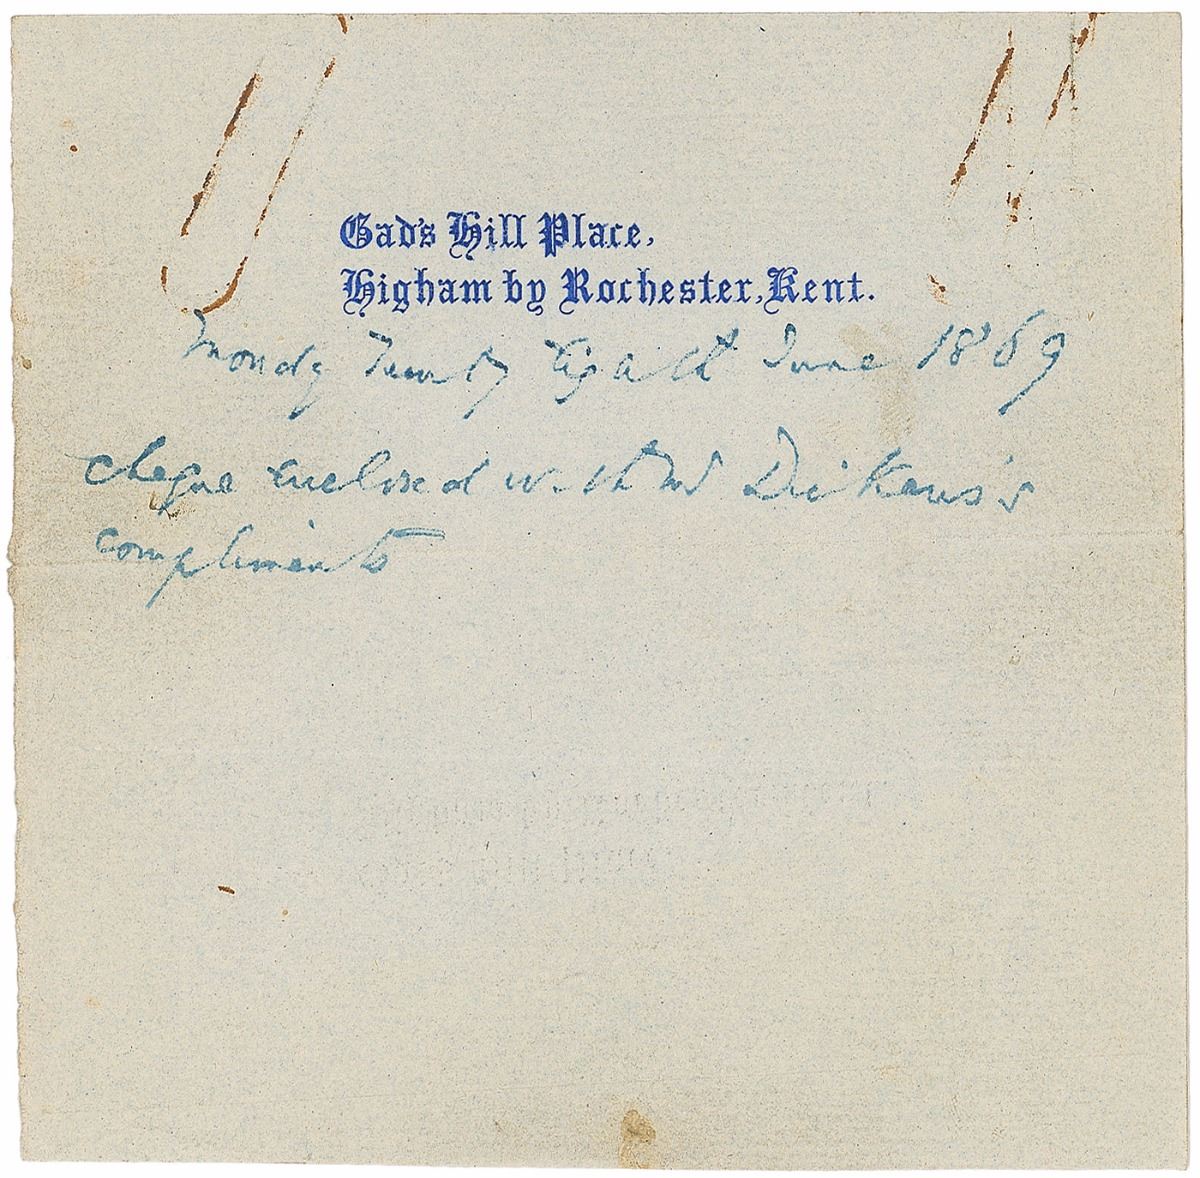 Gad's Hill Place,
Higham by Rochester, Kent.
Monday Twenty Eighth June 1869
Cheque enclosed with Mr Dickens's
compliments